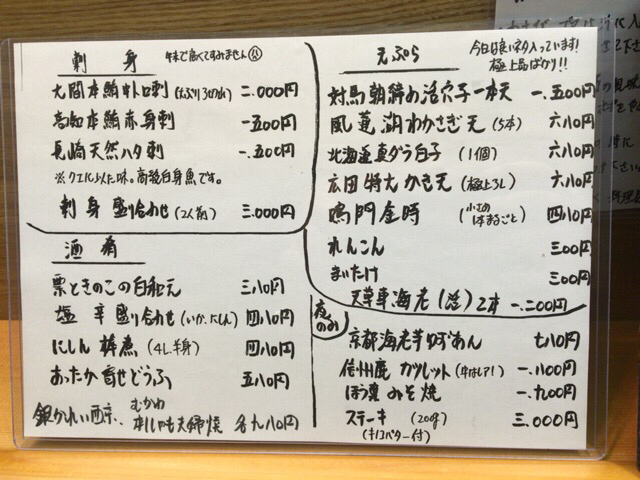 刺身
年末で高くてすみません
大間本鮪中トロ刺 (たっぷり3切れ) 二.000円
高知本鮪赤身刺 一五00円
長崎天然ハタ刺 一.五00円
※クエに似た味。高級白身魚です。
刺身盛り合わせ (2人前) 三.000円
酒肴
栗ときのこの白和え 三八0円
塩辛盛り合わせ (いか、たこ) 四八0円
にしん棒煮 (4L半身) 四八0円
あったか寄せどうふ 五八0円
銀がれい西京、むかわ本ししゃも夫婦焼 各九八0円
天ぷら
今日は良いネタ入っています!
極上品ばかり!!
対馬朝絆め活穴子一本天 一.五00円
風蓮湖わかさぎ天 (5本) 六八0円
北海道真ダラ白子 (1個) 六八0円
広田特大かき天 (極上3L) 六八0円
鳴門金時 (小さめ1本まるごと) 四八0円
れんこん 三00円
まいたけ 三00円
天草車海老 (活) 2本 一.二00円
夜のみ
京都海老芋ゆずあん 七八0円
信州鹿カツレット (牛はレア!) 一.八00円
ほう葉みそ焼 一.九00円
ステーキ (200g) 三.000円
(キノコバター付)